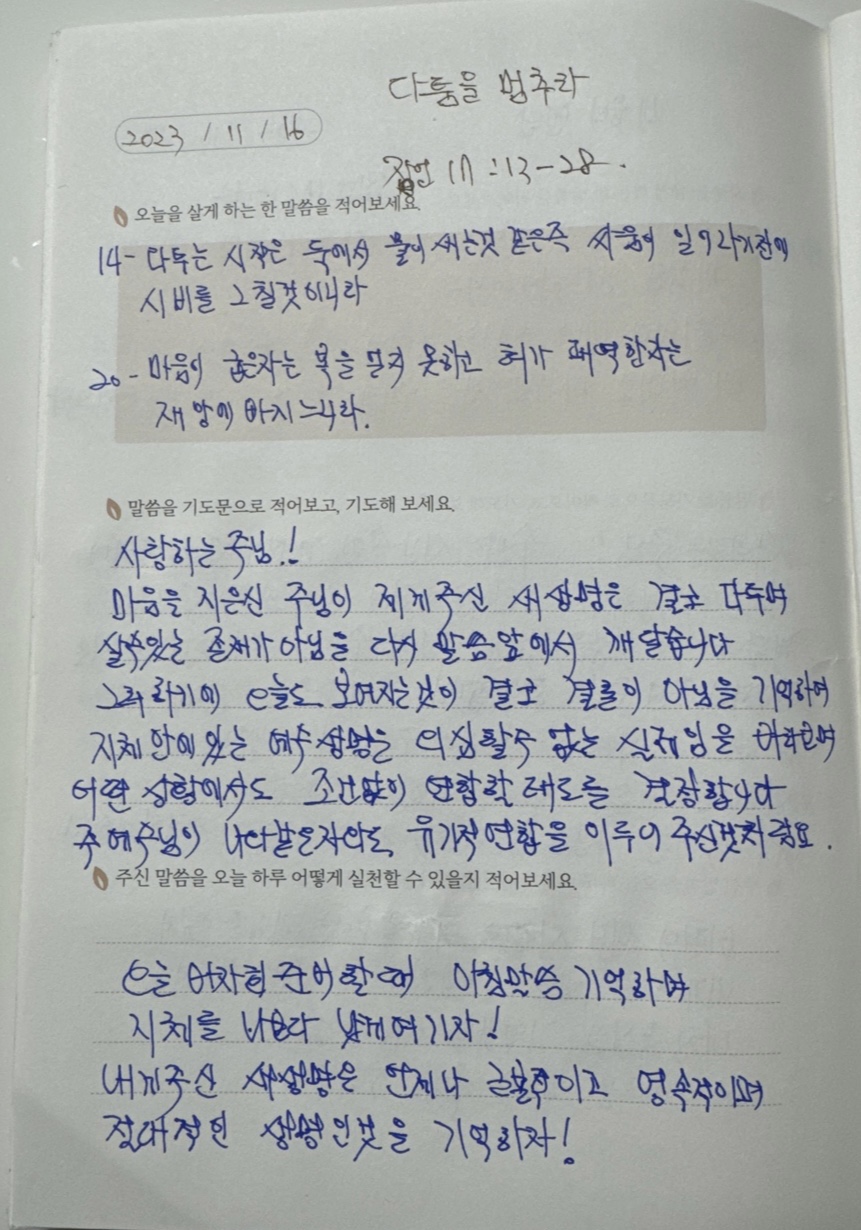 다툼을 멈추라
2023 / 11 / 16
잠언 17 : 13 - 28 .
오늘을 살게 하는 한 말씀을 적어보세요
14 - 다투는 시작은 둑에서 물이 새는것 같은즉 싸움이 일어나기전에
시비를 그칠것이니라
20 - 마음이 굽은자는 복을 얻지 못하고 혀가 패역한자는
재앙에 빠지느니라.
말씀을 기도문으로 적어보고, 기도해 보세요
사랑하는 주님.!
마음을 지은신 주님이 제게 주신 새생명은 결코 다투며
살수있는 존재가 아님을 다시 말씀앞에서 깨닫습니다
그러하기에 오늘도 보여지는것이 결코 결론이 아님을 기억하며
지체안에 있는 예수생명은 의심할수 없는 실제임을 바라보며
어떤 상황에서도 조건없이 연합할 태도를 결정합니다
주 예수님이 나와같은자와도 유기적연합을 이루어 주신것처럼요 .
주신 말씀을 오늘 하루 어떻게 실천할 수 있을지 적어보세요
오늘 준비할때 아침말씀 기억하며
지체를 나보다 낫게여기자!
내게주신 새생명은 언제나 이고 영속적이며
절대적인 생명인것을 기억하자!